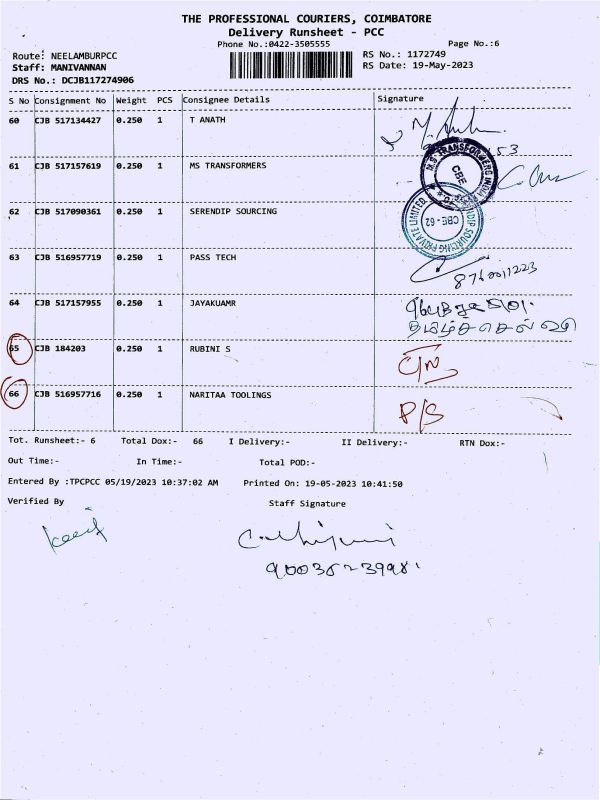 THE PROFESSIONAL COURIERS, COIMBATORE
Delivery Runsheet - PCC
Phone No.:0422-3505555 Page No.:6
Route: NEELAMBURPCC RS No.: 1172749
Staff: MANIVANNAN RS Date: 19-May-2023
DRS No.: DCJB117274906
S No Consignment No Weight PCS Consignee Details Signature
60 CJB 517134427 0.250 1 T ANATH
61 CJB 517157619 0.250 1 MS TRANSFORMERS
M.S. TRANSFORMERS INDIA
CBE
62 CJB 517090361 0.250 1 SERENDIP SOURCING
SOURCING PRIVATE LIMITED
CBE - 62
63 CJB 516957719 0.250 1 PASS TECH
8760011223
64 CJB 517157955 0.250 1 JAYAKUAMR
65 CJB 184203 0.250 1 RUBINI S
66 CJB 516957716 0.250 1 NARITAA TOOLINGS
Tot. Runsheet:- 6 Total Dox:- 66 I Delivery:- II Delivery:- RTN Dox:-
Out Time:- In Time:- Total POD:-
Entered By :TPCPCC 05/19/2023 10:37:02 AM Printed On: 19-05-2023 10:41:50
Verified By Staff Signature